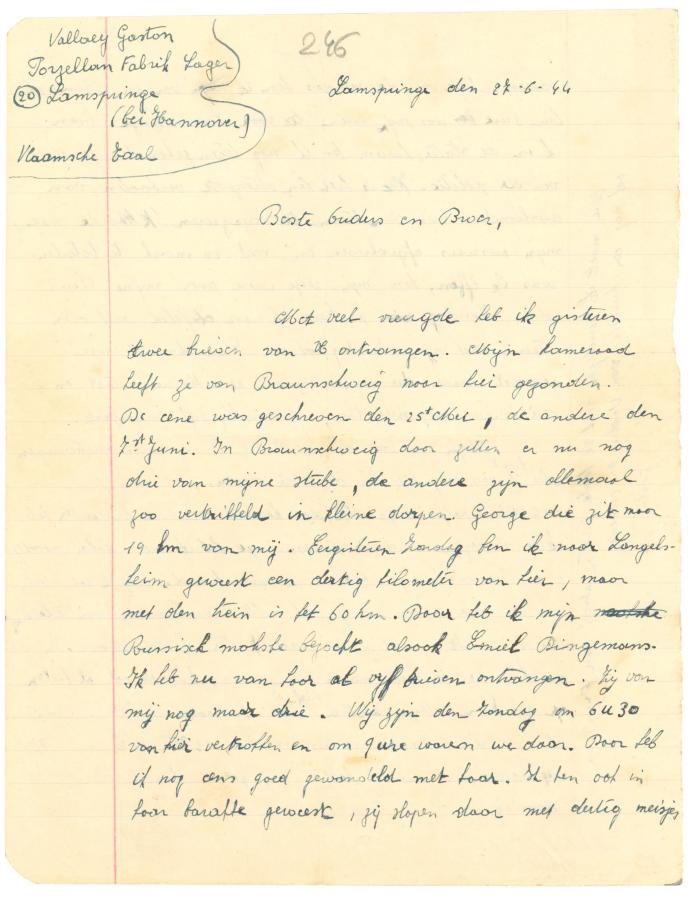 Vallaey Gaston
Porzellan Fabrik Lager
20 Lamspringe
(bei Hannover)
Vlaamsche Taal
246
Lamspringe den 27-6-44
Beste Ouders en Broer,
Met veel vreugde heb ik gisteren
twee brieven van U ontvangen. Mijn kameraad
heeft ze van Braunschweig naar hier gezonden.
De eene was geschreven den 25st Mei, de andere den
7st Juni. In Braunschweig daar zitten er nu nog
drie van mijne stube, de andere zijn allemaal
zoo vertritteld in kleine dorpen. George die zit maar
19 km van mij. Eergisteren Zondag ben ik naar Langels-
heim geweest een dertig kilometer van hier, maar
met den trein is het 60 km. Daar heb ik mijn
Russisch mokste bezocht alsook Emiel Dingemans.
Ik heb nu van haar al vyf brieven ontvangen. Zij van
mij nog maar drie. Wij zijn den Zondag om 6u30
van hier vertrokken en om 9ure waren we daar. Daar heb
ik nog eens goed gewandeld met haar. Ik ben ook in
haar barakke geweest, zij slapen daar met dertig meisjes